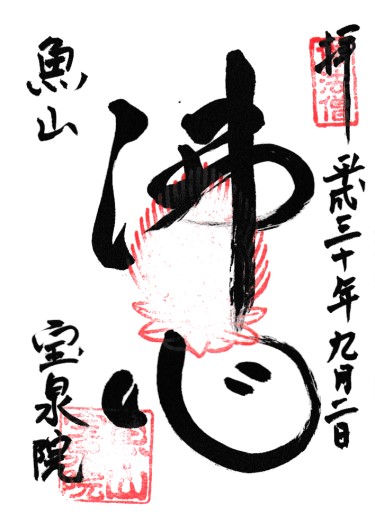 拝
平成三十年九月二日
佛心
魚山
宝泉院